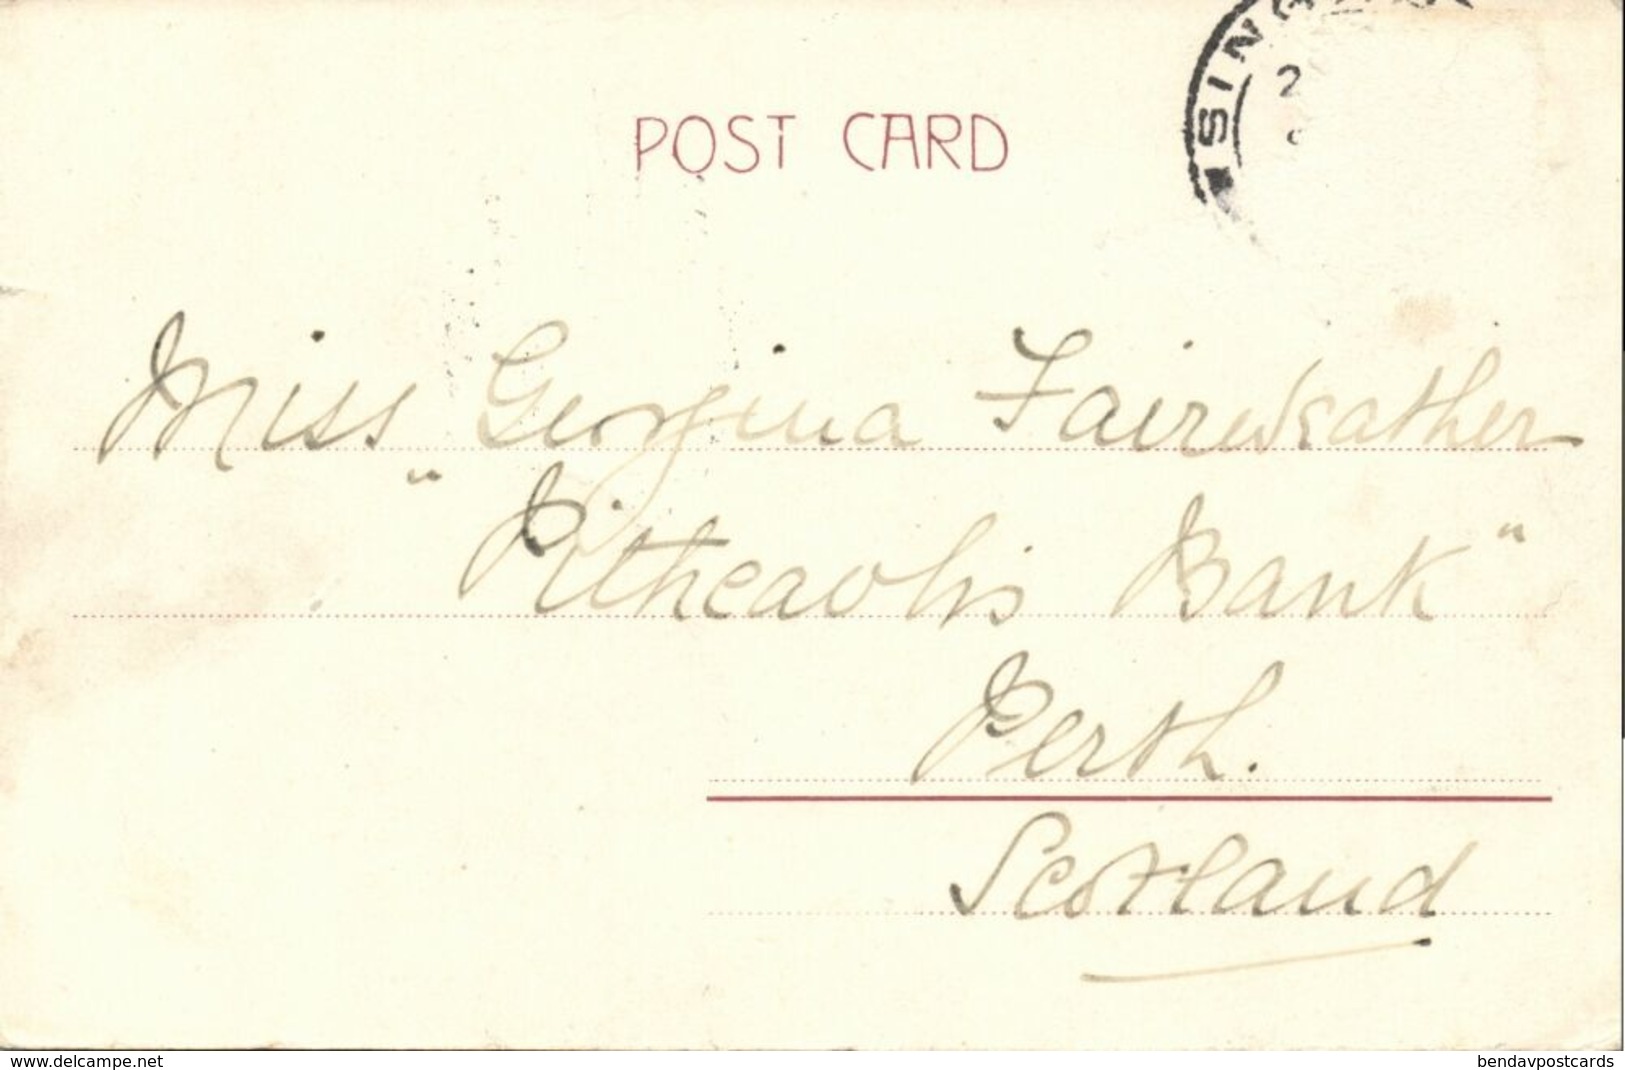 SINGA
2
POST CARD
Miss Georgina Fairweather
" Pitheavlis Bank "
Perth.
Scotland
www.delcampe.net
bendavpostcards